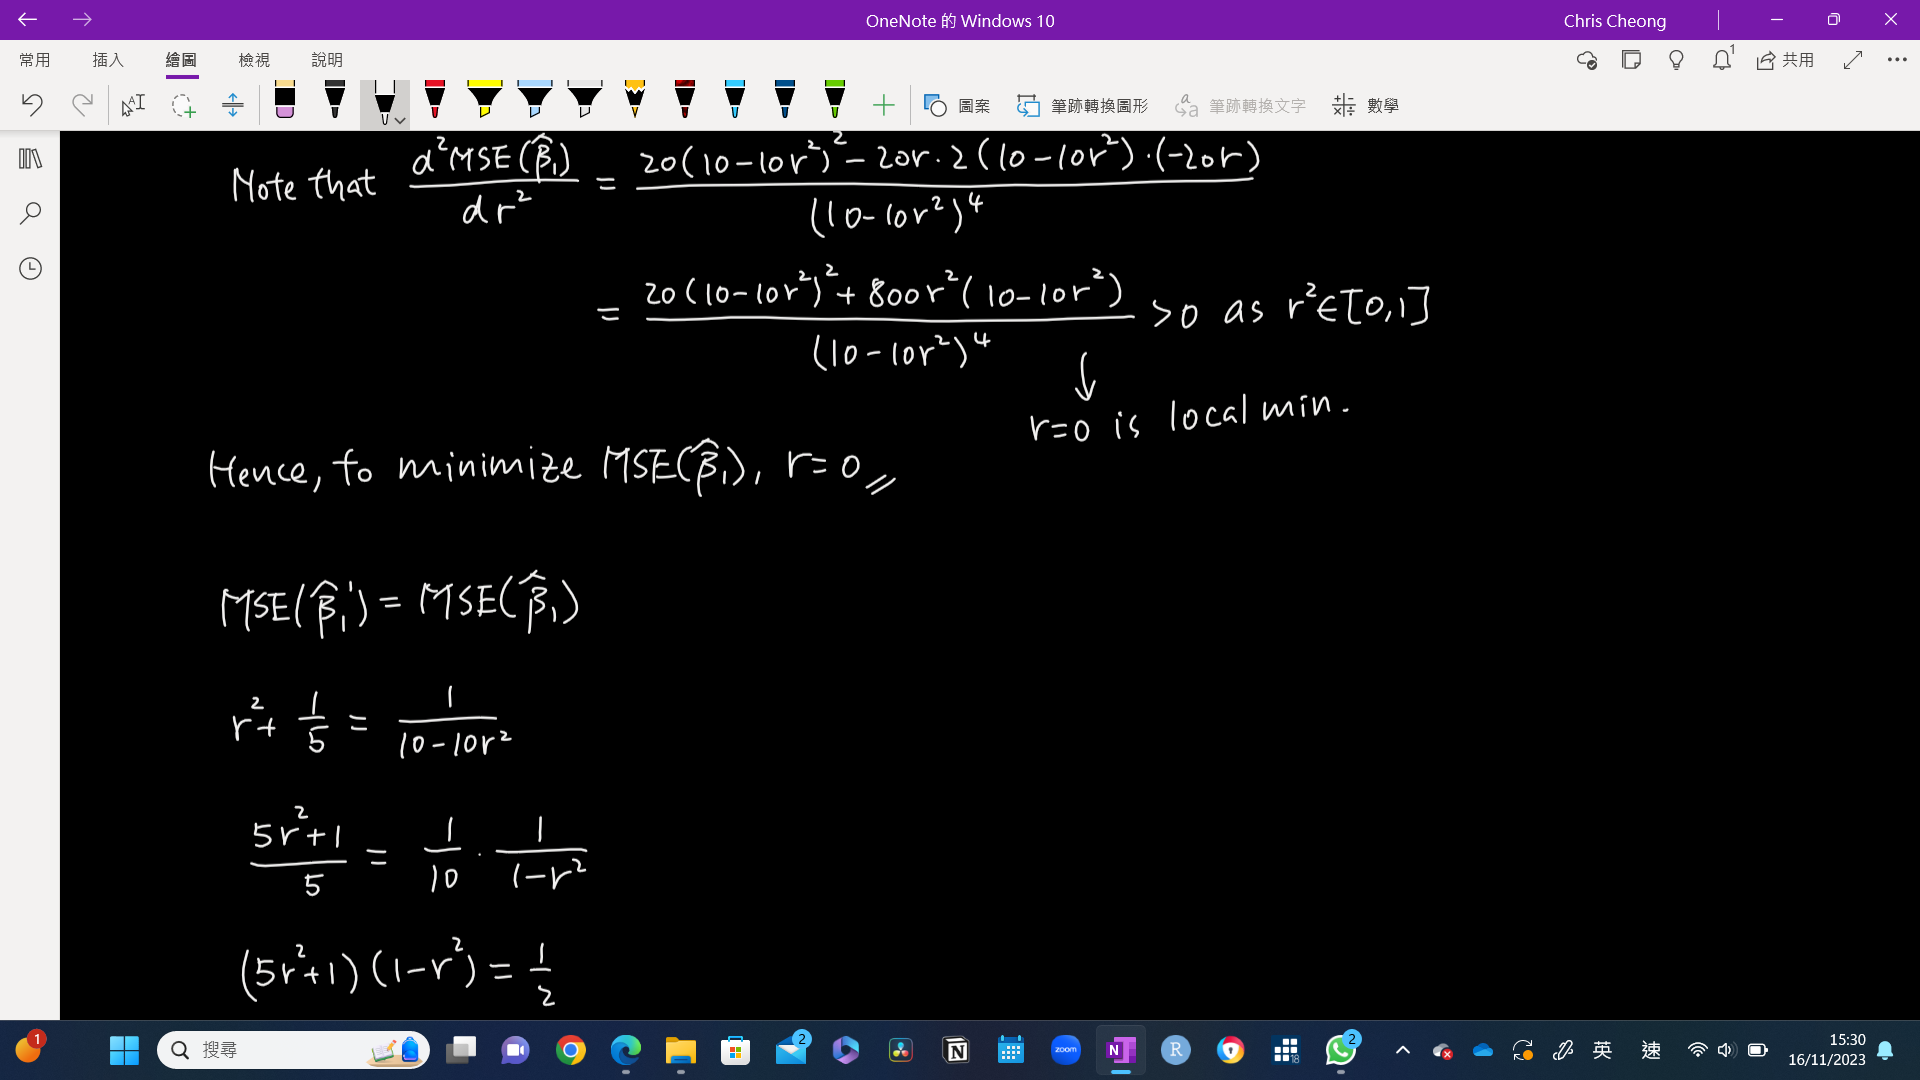 OneNote 的 Windows 10
Chris Cheong
常用 插入 繪圖 檢視 說明
1
共用
圖案 筆跡轉換圖形 筆跡轉換文字 數學
Note that d²MSE(β̂₁)/dr² = (20(10-10r²)² - 20r·2(10-10r²)·(-20r))/(10-10r²)⁴
= (20(10-10r²)² + 800r²(10-10r²))/(10-10r²)⁴ >0 as r²∈[0,1]
↓
r=0 is local min.
Hence, to minimize MSE(β̂₁), r=0
MSE(β̂₁') = MSE(β̂₁)
r² + 1/5 = 1/(10-10r²)
(5r²+1)/5 = 1/10 · 1/(1-r²)
(5r²+1)(1-r²) = 1/2
1
搜尋
2
zoom
N
R
18
2
英
速
15:30
16/11/2023